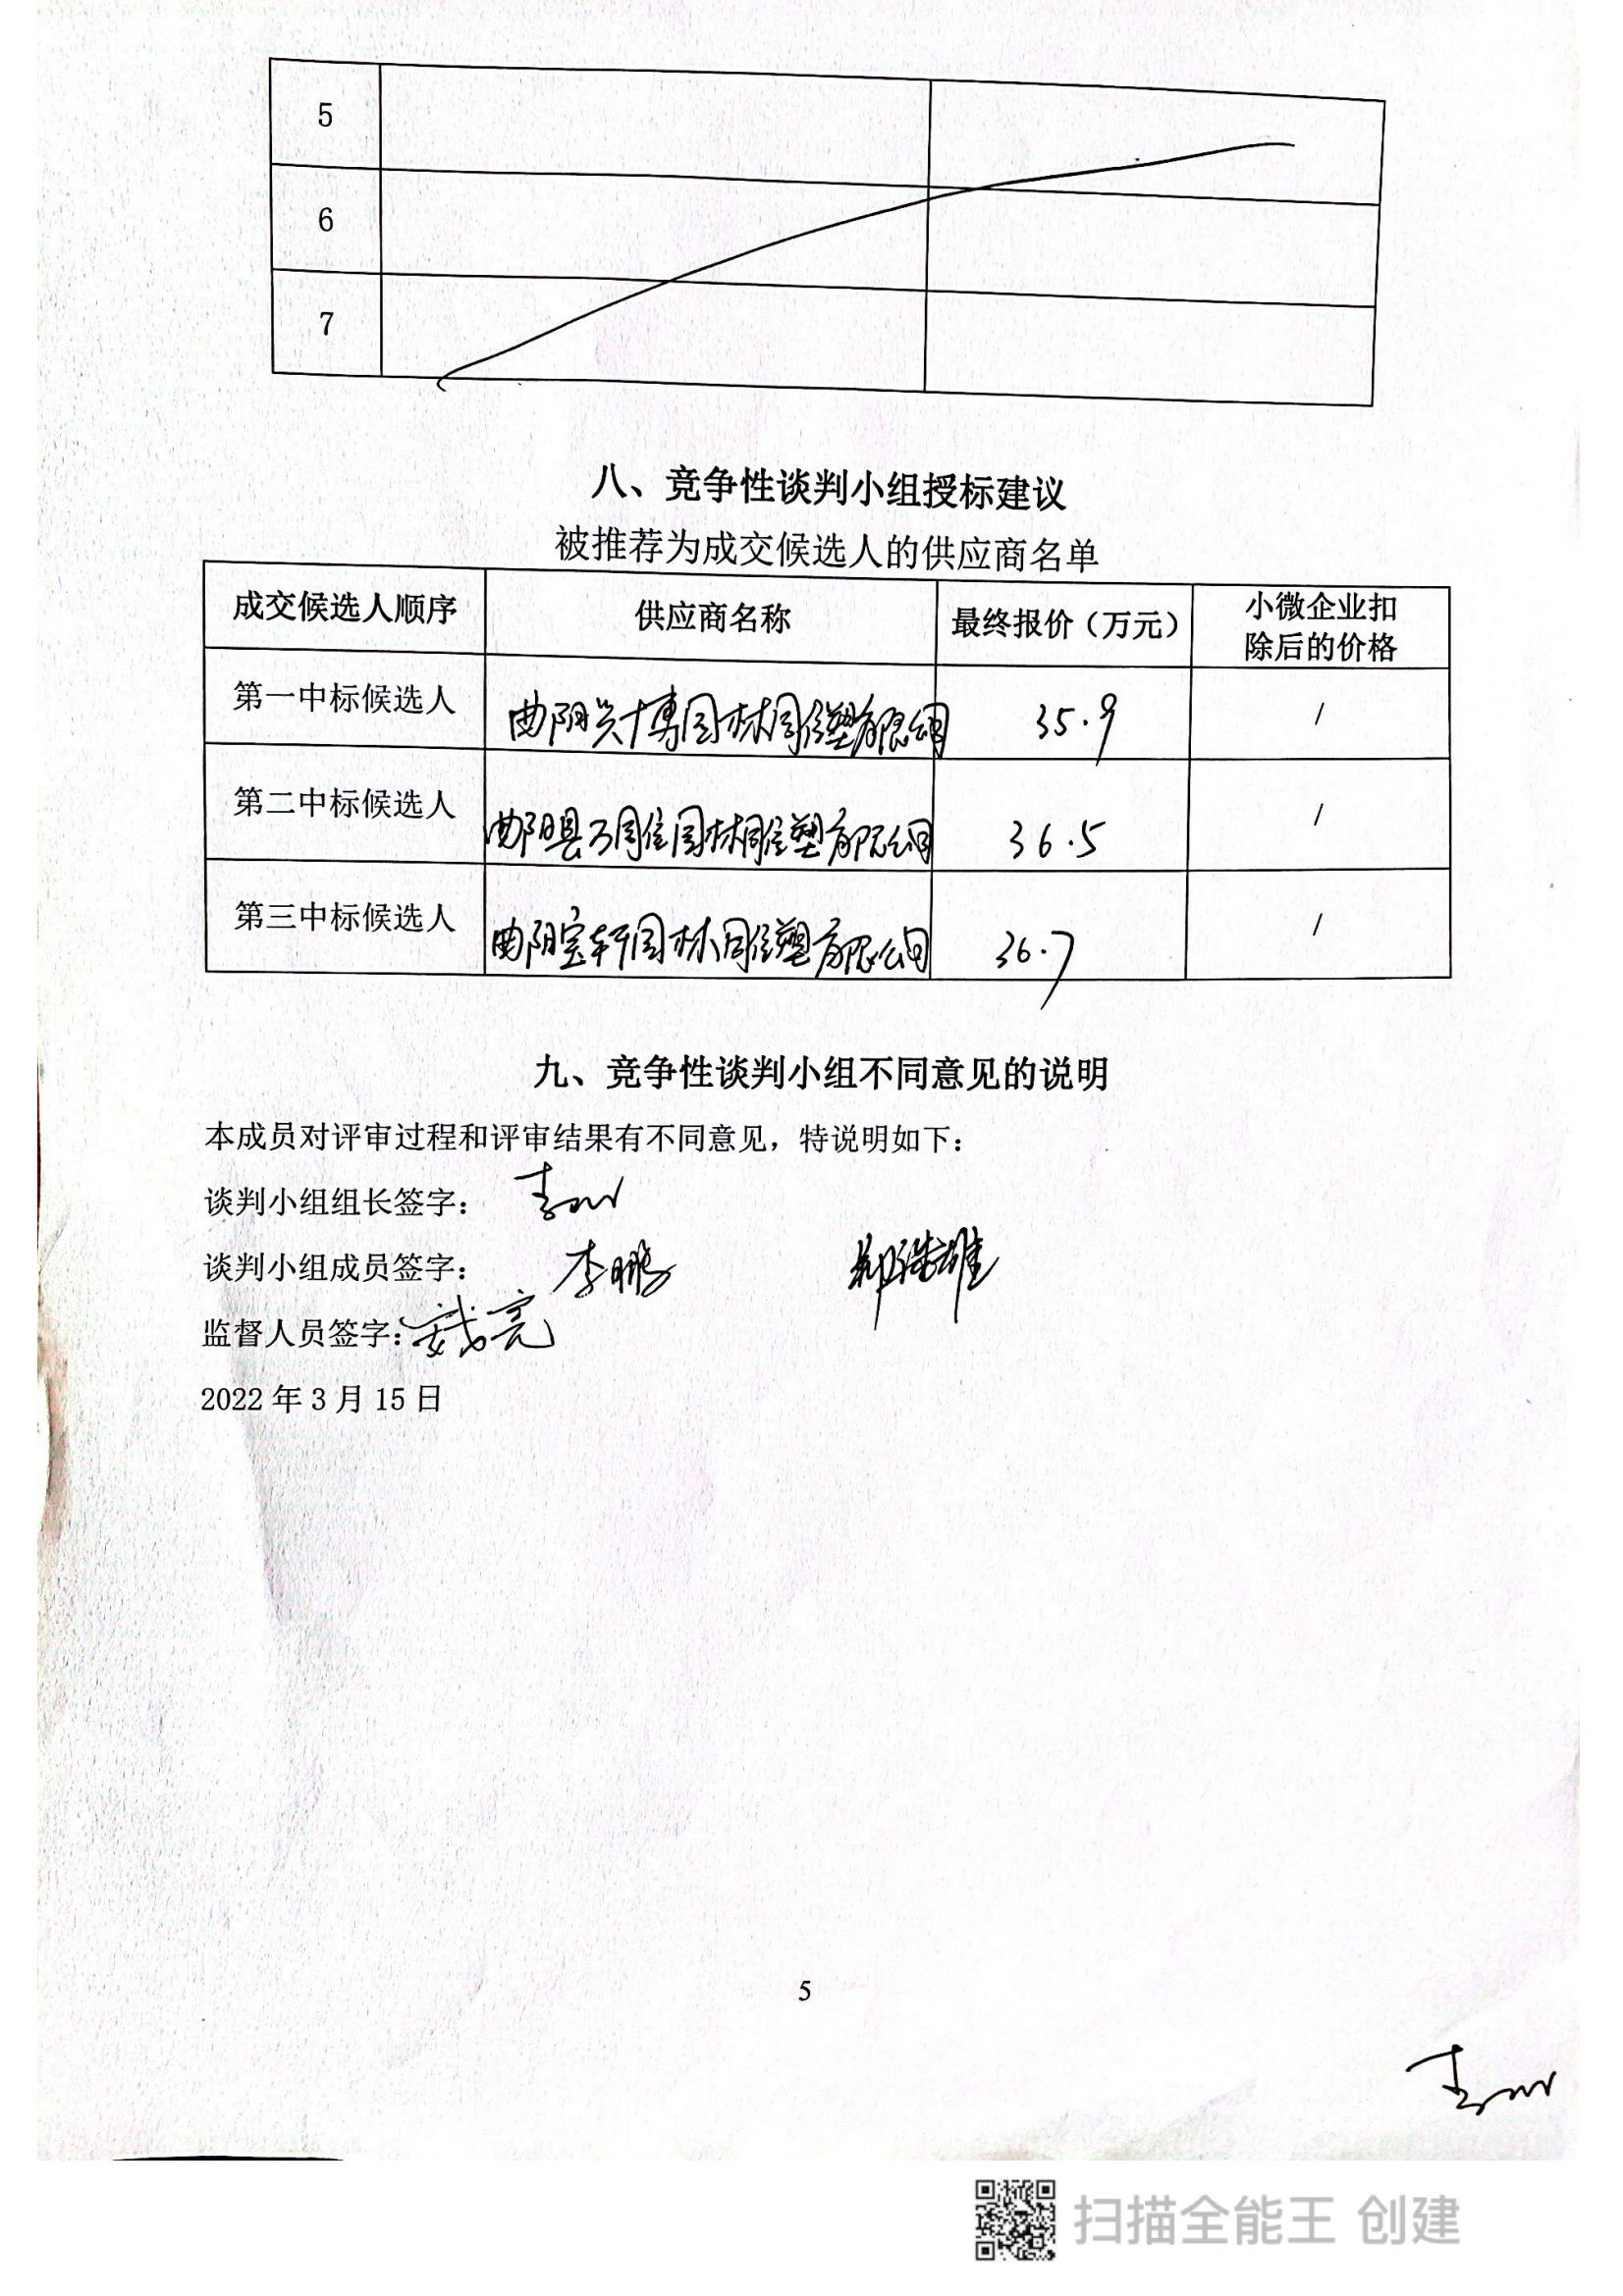 5
6
7
八、竞争性谈判小组授标建议
被推荐为成交候选人的供应商名单
成交候选人顺序 供应商名称 最终报价（万元） 小微企业扣除后的价格
第一中标候选人 曲阳兴博园林雕塑有限公司 35.9 /
第二中标候选人 曲阳县万周佳园林雕塑有限公司 36.5 /
第三中标候选人 曲阳宝轩园林雕塑有限公司 36.7 /
九、竞争性谈判小组不同意见的说明
本成员对评审过程和评审结果有不同意见，特说明如下：
谈判小组组长签字：
谈判小组成员签字： 李鹏
监督人员签字：
2022 年 3 月 15 日
5
扫描全能王 创建